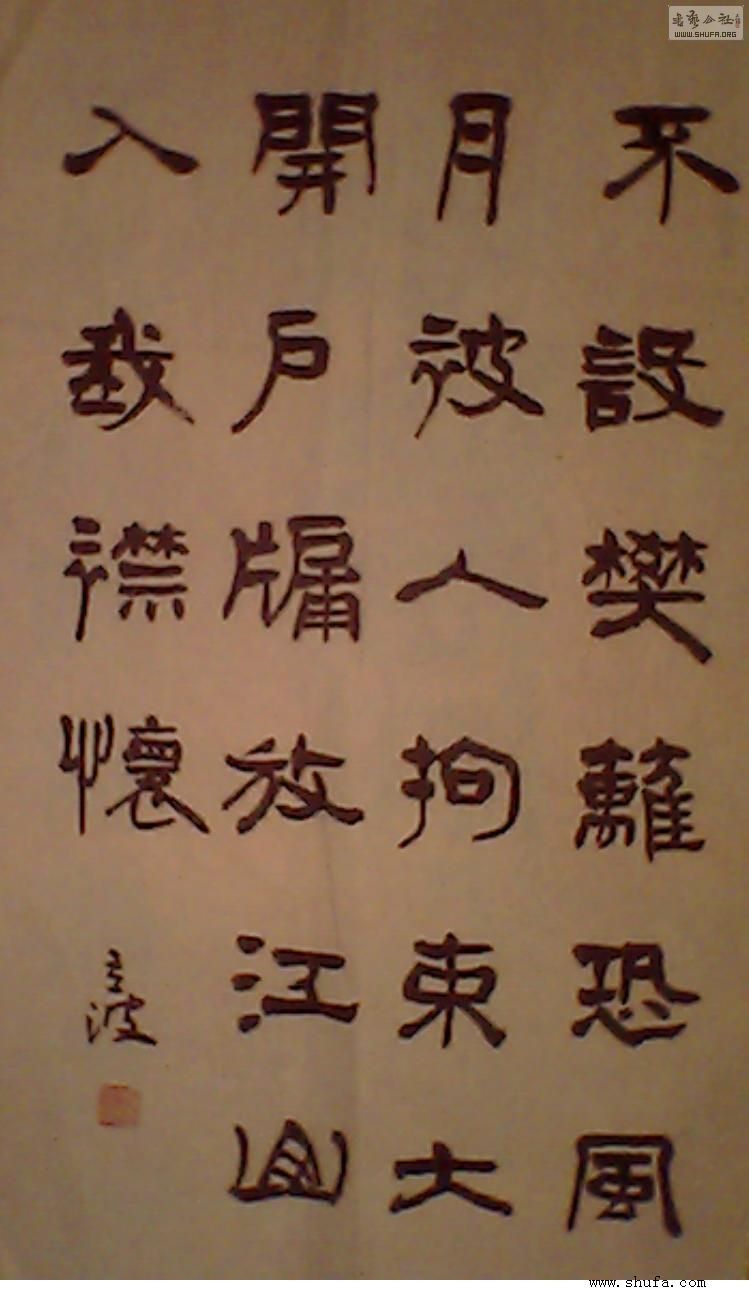 不設樊籬恐風
月被人拘束大
開戶牖放江山
入我襟懷
波
书艺公社
WWW.SHUFA.ORG
www.shufa.com